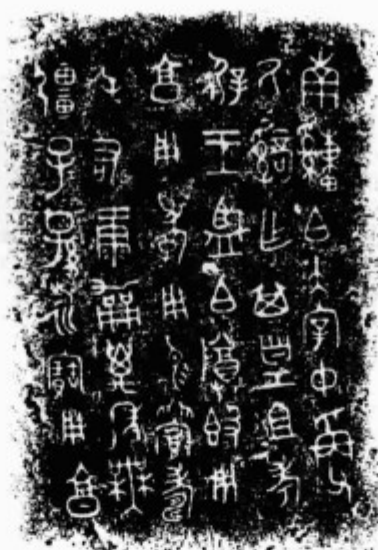 南申白大宰中爯父
厥辭乍其皇且考
王監白尊𣪘用
享用孝用易眉壽
屯右康萬年無
疆子孫永寶用享